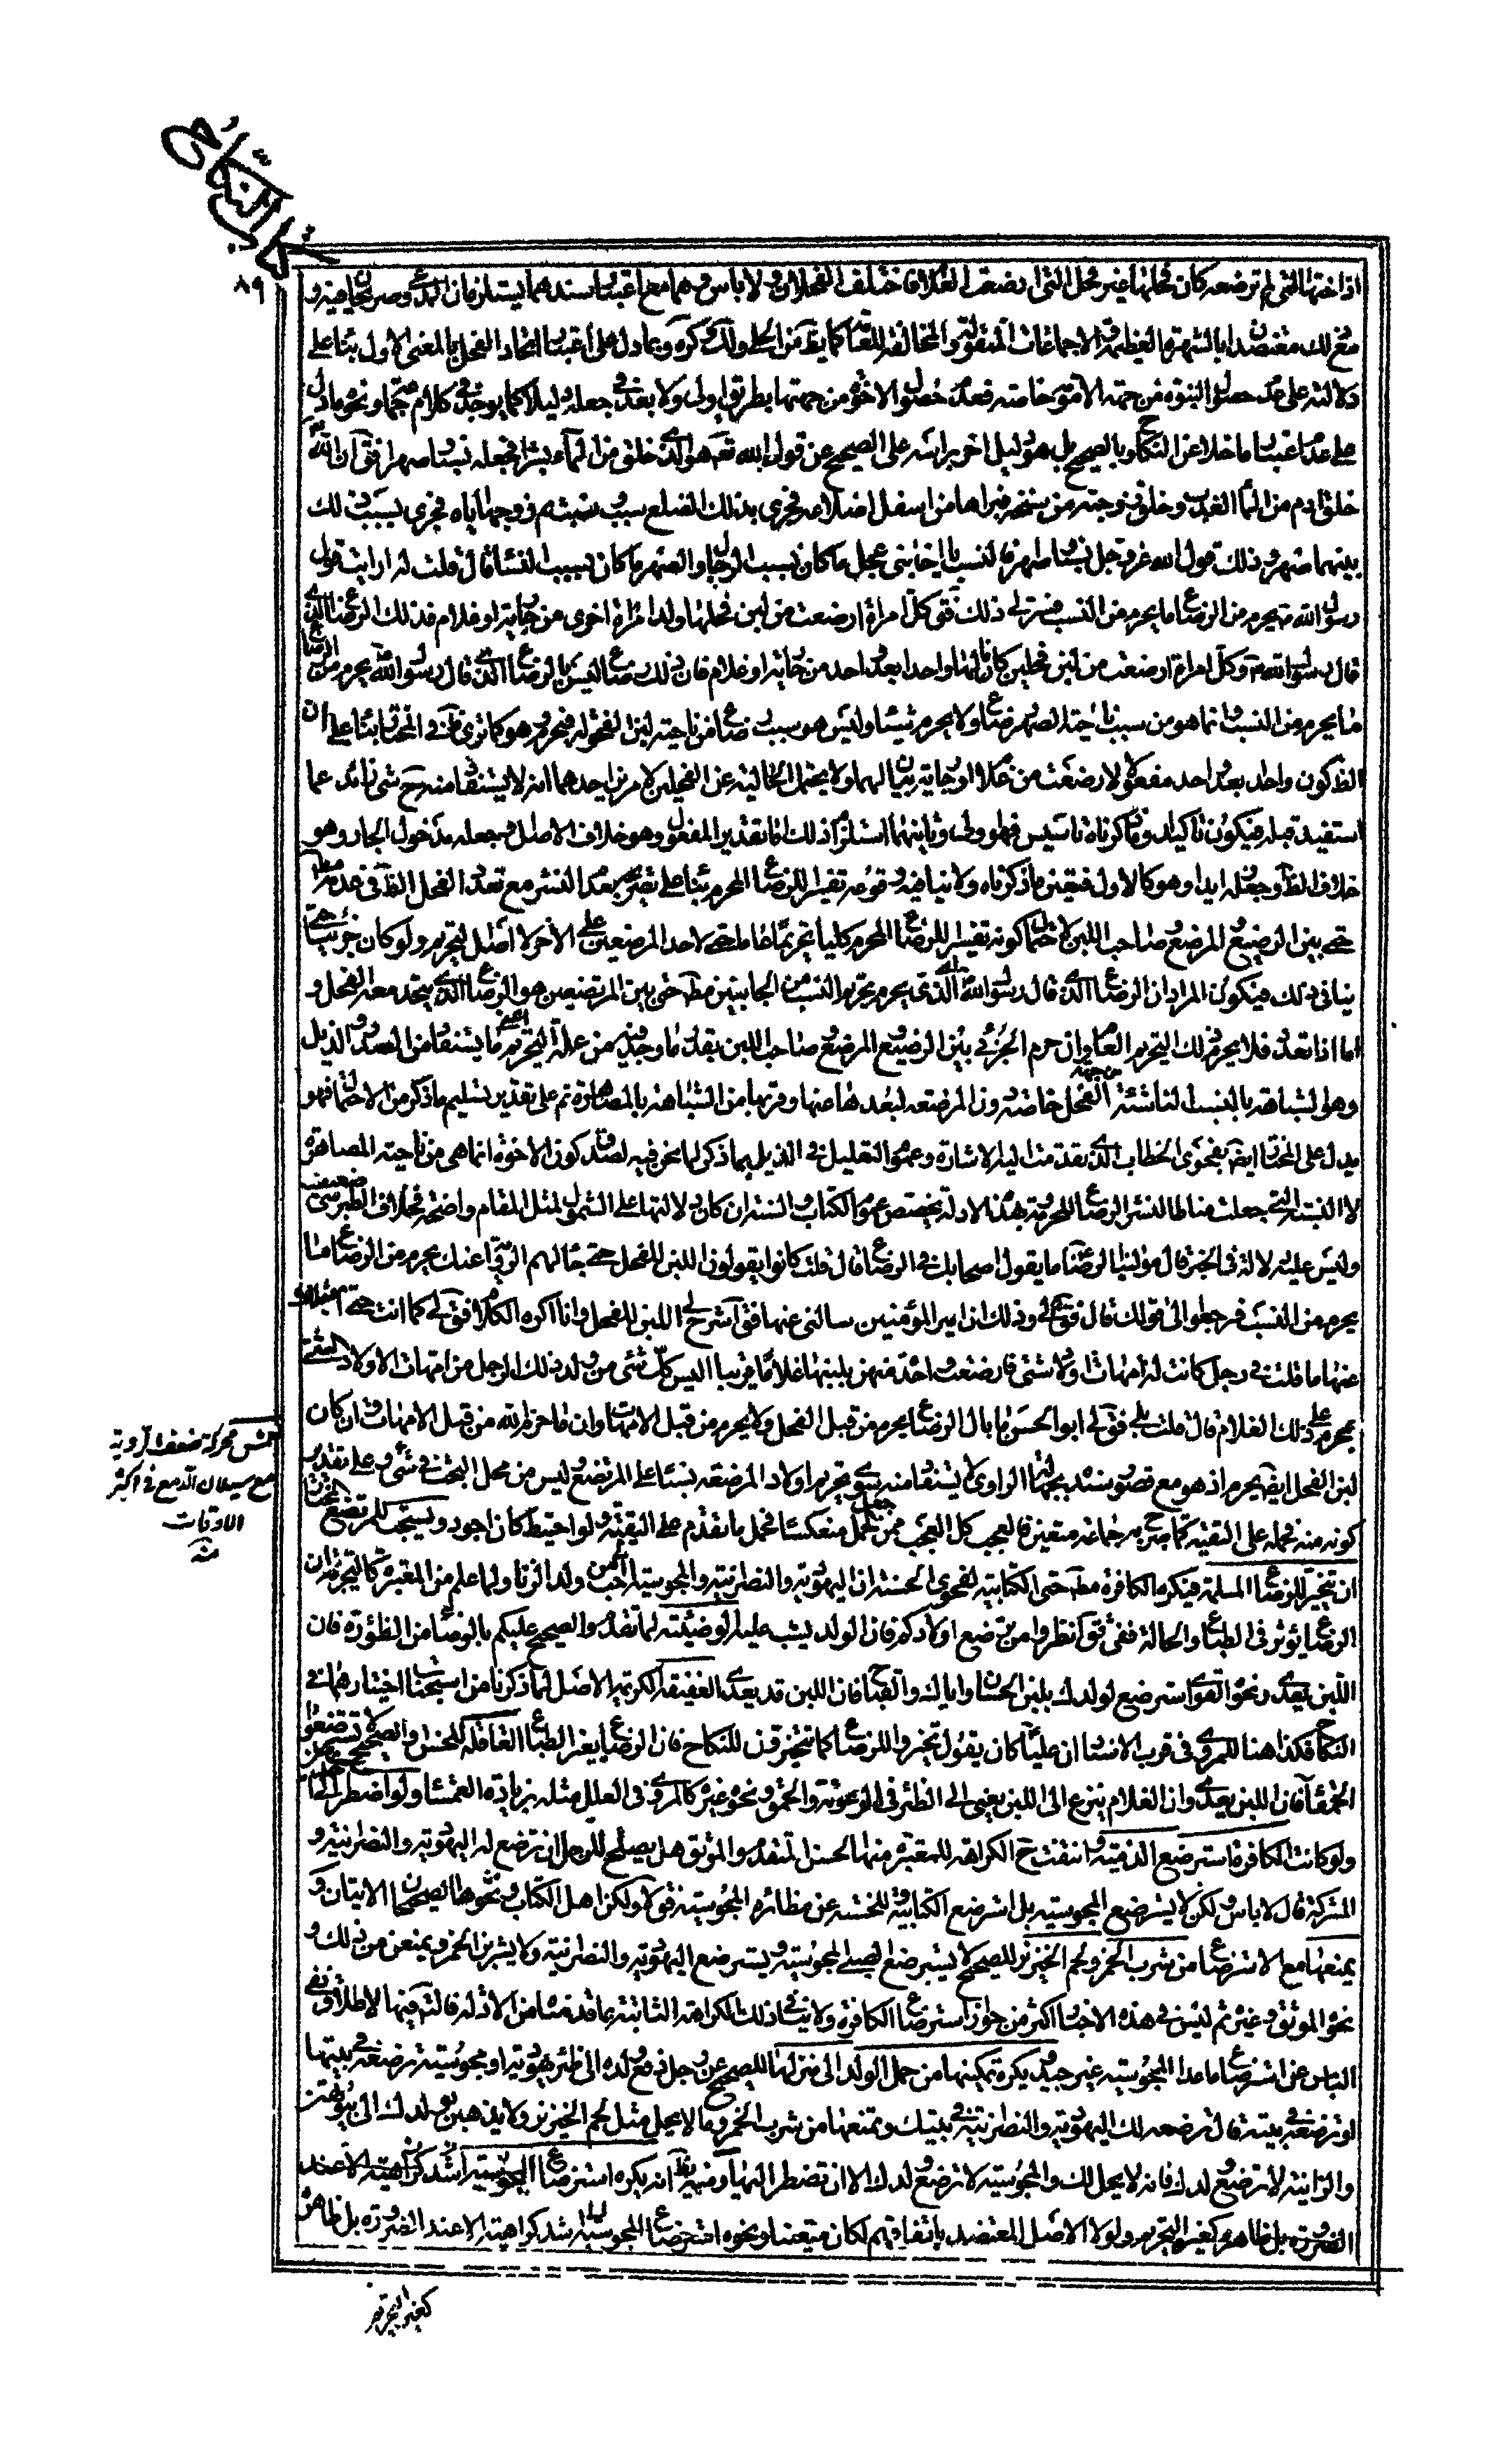 كتاب النكاح
٨٩
اذا اختها التي لم ترضعه كان فحلها غير فحل التي ارضعت الغلام فاختلف الفحلان فلا باس وهما مع اعتبار سندهما يستلزمان المدعى وصريحان فيه و
مع ذلك معتضدان بالشهرة العظيمة والاجماعات المنقولة والمخالفة للعامة كما يظهر من الحلي ولك وكره وبما دل على اعتبار اتحاد الفحل بالمعنى الاول بناء على
دلالته على عدم حصول البنوة من جهة الامومة خاصة فعدم حصول الاخوة من جهتها بطريق اولى ولا بعد في جعله دليلا كما يوجد في كلام جماعة ونحوه ما دل
على عدم اعتبار ما خلا عن النكاح وبالصحيح بل هو دليل اخر براسه على الصحيح عن قول الله تعه هو الذي خلق من الماء بشرا فجعله نسبا وصهرا فق ان الله
خلق ادم من الماء العذب وخلق زوجته من سنخه فبراها من اسفل اضلاعه فجرى بذلك الضلع سبب ونسب ثم زوجها اياه فجرى بسبب ذلك
بينهما صهر وذلك قول الله عز وجل نسبا وصهرا فالنسب يا اخا بني عجل ما كان بسبب الرجال والصهر ما كان بسبب النساء قال قلت له ارايت قول
رسول الله ص يحرم من الرضاع ما يحرم من النسب فسر لي ذلك فق كل امراة ارضعت من لبن فحلها ولد امراة اخرى من جارية او غلام فذلك الرضاع الذي
قال رسول الله ص وكل امراة ارضعت من لبن فحلين كانا لها واحدا بعد واحد من جارية او غلام فان ذلك رضاع ليس بالرضاع الذي قال رسول الله يحرم من الرضاع
ما يحرم من النسب وانما هو من سبب ناحية الصهر رضاع ولا يحرم شيئا وليس هو سبب رضاع من ناحية لبن الفحولة فيحرم وهو كما ترى ظ في المختار بناء على ان
الظ كون واحد بعد واحد مفعولا لارضعت من غلام او جارية بيان لهما ولا يحتمل الحالية عن الفحلين لامرين احدهما انه لا يستفاد منه ح شئ زائد عما
استفيد قبله فيكون تاكيدا وما ذكرناه تاسيس فهو اولى وثانيهما استلزام ذلك اما تقدير المفعول وهو خلاف الاصل او جعله مدخول الجار وهو
خلاف الظ وجعله ابدا وهو كالاول فتعين ما ذكرناه ولا ينافيه وقوعه تفسيرا للرضاع المحرم بناء على تصريحه بعدم النشر مع تعدد الفحل الظ في عدمه مطلقا
حتى بين الرضيع والمرضع وصاحب اللبن لاحتمال كونه تفسيرا للرضاع المحرم كليا تحريما عاما حتى لاحد المرضعين على الاخر لا اصل التحريم ولو كان جزئيا حتى
ينافي ذلك فيكون المراد ان الرضاع الذي قال رسول الله انه الذي يحرم تحريم النسب من الجانبين مط حتى بين المرتضعين هو الرضاع الذي يتحد معه الفحل و
اما اذا تعدد فلا يحرم ذلك التحريم العام وان حرم الجزئي بين الرضيع والمرضع وصاحب اللبن بقدر ما وجد فيه من علة التحريم ما يستفاد من الصدر والذيل
وهو الشباهة بالنسب الناشئة من جهة الفحل خاصة دون المرضعة لبعدها عنها وقربها من الشباهة بالمصاهرة ثم على تقدير تسليم ما ذكر من الاحتمال فهو
يدل على المختار ايضا بفحوى الخطاب الذي تقدمت اليه الاشارة وعموم التعليل في الذيل بما ذكر لما نحن فيه لصدق كون الاخوة انما هي من ناحية المصاهرة
لا النسب التي جعلت مناطا لنشر الرضاع الحرمة وبهذه الادلة يخصص عموم الكتاب والسنة ان كان دلالتها على الشمول لمثل المقام واضحة فخلاف الطبرسي ضعيف
وليس عليه دلالة في الخبر قال مولانا الرضا ما يقول اصحابك في الرضاع قال قلت كانوا يقولون اللبن للفحل حتى جائتهم الرواية عنك يحرم من الرضاع ما
يحرم من النسب فرجعوا الى قولك قال فق لي وذلك ان امير المؤمنين سالني عنها فق لي اشرح لي اللبن للفحل وانا اكره الكلام فق لي كما انت حتى اسئلك
عنها ما قلت في رجل كانت له امهات اولاد شتى فارضعت واحدة منهن بلبنها غلاما غريبا اليس كل شئ من ولد ذلك الرجل من امهات الاولاد الشتى
يحرم على ذلك الغلام قال قلت بلى فق لي ابو الحسن ما بال الرضاع يحرم من قبل الفحل ولا يحرم من قبل الامهات وانما حرم الله من قبل الامهات وان كان
لبن الفحل ايضا يحرم اذ هو مع قصور سنده بجهالة الراوي لا يستفاد منه سوى تحريم اولاد المرضعة نسبا على المرتضع وليس من محل البحث في شئ وعلى تقدير
كونه منه فحمله على التقية كما صرح به جماعة متعين فالعجب كل العجب ممن جعل منعكسا فحمل ما تقدم على التقية ولو احتيط كان اجود ويستحب للمرتضع المختار
ان يتخير للرضاع المسلمة فيكره الكافرة مط حتى الكتابية لفحوى الحسنة ان اليهودية والنصرانية والمجوسية احب الي من ولد الزنا ولما علم من المعتبرة كالتجربة من ان
الرضاع يؤثر في الطباع والحالة ففي فوق انظروا من ترضع اولادكم فان الولد يشب عليه الوضيئة لما تقدم والصحيح عليكم بالوضاء من الظؤرة فان
اللبن يعدي ونحوه القوي استرضع لولدك بلبن الحسان واياك والقباح فان اللبن قد يعدي العفيفة الكريمة الاصل لما ذكرنا من استحباب اختيارهما في
النكاح فكذا هنا للمروي في قرب الاسناد ان عليا كان يقول تخيروا للرضاع كما تتخيرون للنكاح فان الرضاع يغير الطباع العاقلة للحسن والصحيح لا تسترضعوا
الحمقاء فان اللبن يعدي وان الغلام ينزع الى اللبن يعني الى الظئر في الرعونة والحمق ونحوه غيره كالمروي في العلل مثله بزيادة العمشاء ولو اضطر الى
ولو كانت الكافرة استرضع الذمية وانتفت ح الكراهة للمعتبرة منها الحسن المتقدم والموثق هل يصلح للرجل ان ترضع له اليهودية والنصرانية و
المشركة قال لا باس ولكن لا يسترضع المجوسية بل استرضع الكتابية وللحسنة عن مظائرة المجوسية فق لا ولكن اهل الكتاب ونحوها الصحيحان الاتيان و
يمنعها مع الاسترضاع من شرب الخمر ولحم الخنزير للصحيح لا يسترضع الصبي المجوسية ويسترضع اليهودية والنصرانية ولا يشربن الخمر ويمنعن من ذلك و
نحوه الموثق وغيره ثم ليس في هذه الاخبار اكثر من جواز استرضاع الكافرة ولا ينافي ذلك الكراهة الثابتة بما قدمنا من الادلة فالتوجيه فيها الاطلاق ونفي
الباس عن استرضاع ما عدا المجوسية غير جيد ويكره تمكينها من حمل الولد الى منزلها للصحيح عن رجل دفع ولده الى ظئر يهودية او مجوسية ترضعه في بيتها
او ترضعه في بيته قال ترضعه لك اليهودية والنصرانية في بيتك وتمنعها من شرب الخمر وما لا يحل مثل لحم الخنزير ولا يذهبن بولدك الى بيوتهن
والزانية لا ترضع ولدك فانه لا يحل لك والمجوسية لا ترضع ولدك الا ان تضطر اليها ومنه يظ انه يكره استرضاع المجوسية اشد كراهية الا عند
الضرورة بل ظاهره كغيره التحريم ولولا الاصل المعتضد باتفاقهم لكان متعينا ونحوه استرضاع المجوسية اشد كراهية الا عند الضرورة بل ظاهره
عمش محركة ضعف الروية
مع سيلان الدمع في اكثر
الاوقات
منه
كغيره التحريم